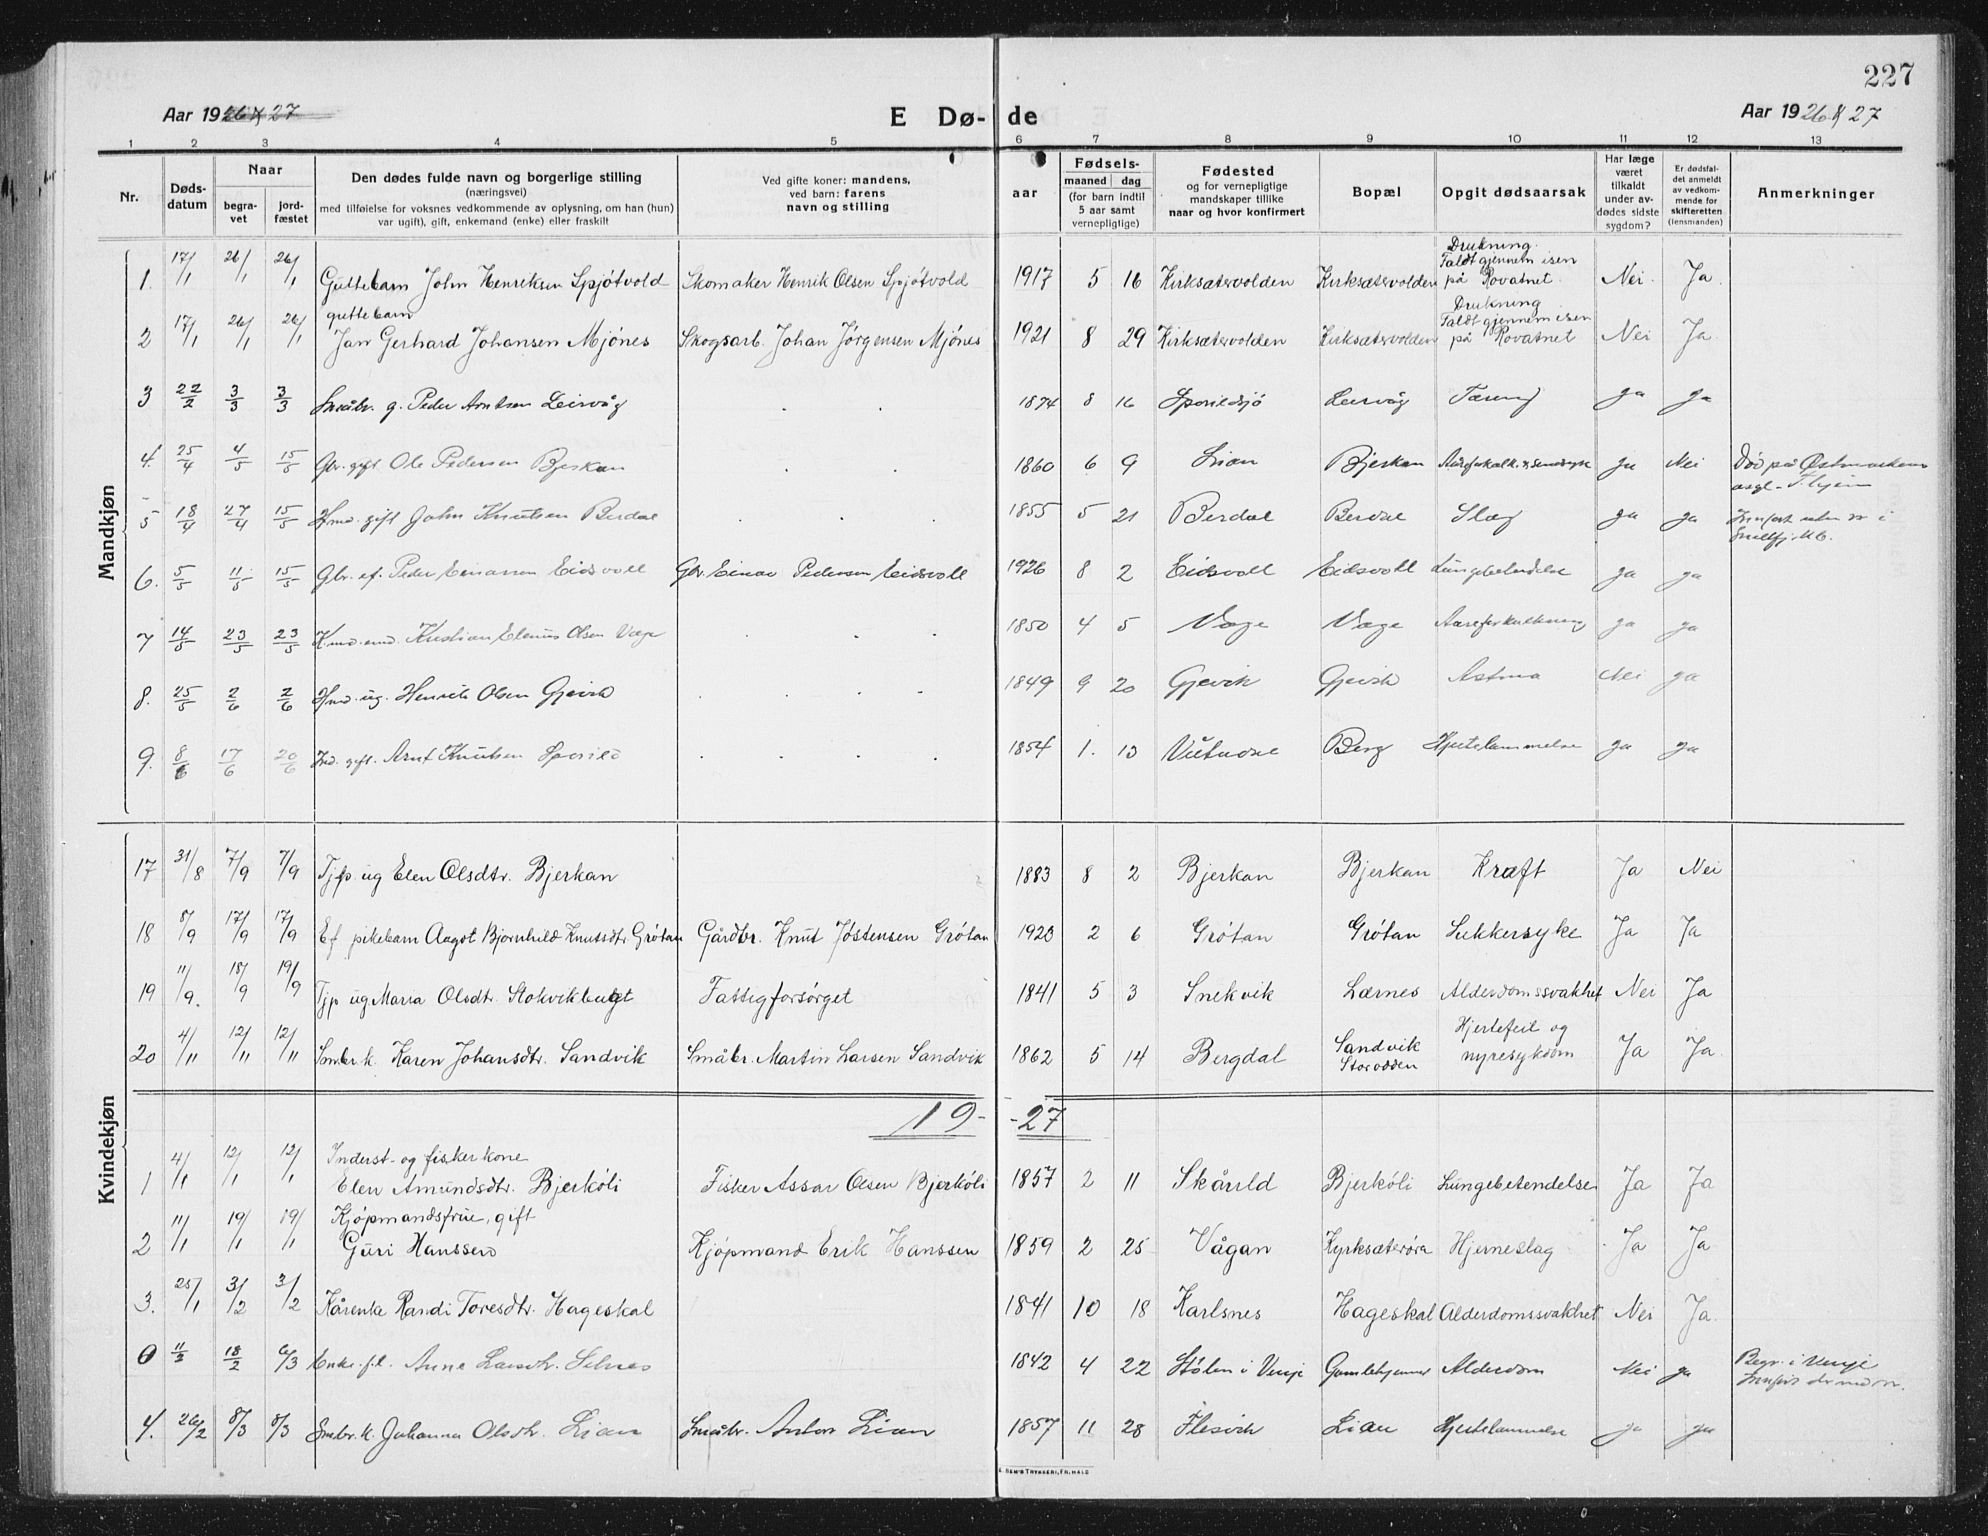 227
Aar 1926 & 27
E Dø-
de
Aar 1926 & 27
1 2 3 4 5 6 7 8 9 10 11 12 13
Nr.
Døds-
datum
Naar
begra-
vet
jord-
fæstet
Den dødes fulde navn og borgerlige stilling
(næringsvei)
med tilføielse for voksnes vedkommende av oplysning, om han (hun)
var ugift), gift, enkemand (enke) eller fraskilt
Ved gifte koner: mandens,
ved barn: farens
navn og stilling
aar
Fødsels-
maaned dag
(for barn indtil
5 aar samt
vernepligtige)
Fødested
og for vernepligtige
mandskaper tillike
naar og hvor konfirmert
Bopæl
Opgit dødsaarsak
Har læge
været
tilkaldt
under av-
dødes sidste
sygdom?
Er dødsfal-
det anmeldt
av vedkom-
mende for
skifteretten
(lensmanden)
Anmerkninger
Mandkjøn
1. 17/1 26/1 26/1 Guttebarn John Henriksen Spjøtvold Skomaker Henrik Olsen Spjøtvold 1917 5 16 Kirksætervolden Kirksætervolden Drukning. Faldt gjennem isen på Rovatnet. Nei. Ja.
2 17/1 26/1 26/1 guttebarn Jan Gerhard Johansen Mjönes Skogsarb. Johan Jörgensen Mjönes 1921 8 29 Kirksætervolden Kirksætervolden Drukning. Faldt gjennem isen på Rovatnet Nei Ja.
3 22/2 3/3 3/3 Småbr. g. Peder Arntsen Leirvåg 1874 8 16 Sporildsjö Leirvåg Tæring ja ja
4. 25/4 4/5 15/5 Gbr. gift Ole Pedersen Bjerkan 1860 6 9 Lian Bjerkan Aareforkalk. & ja Nei Död på Østmarkens
5 18/4 27/4 15/5 gift John Knutsen Berdal 1855 5 21 Berdal Berdal Slag ja ja
6. 5/5 11/5 15/5 Gbr. ef. Peder Einarsen Eidsvoll Gbr. Einar Pedersen Eidsvoll 1926 8 2 Eidsvoll Eidsvoll Lungebetendelse ja ja
7 14/5 23/5 23/5 Kristian Elenius Olsen Vage 1850 4 5 Vage Vage Aareforkalkning ja ja
8. 25/5 2/6 2/6 ug. Henrik Olsen Gjevik 1849 9 20 Gjevik Gjevik Astma Nei ja
9. 8/6 17/6 20/6 gift. Arnt Knutsen Sporild 1854 1. 13 Berg Hjertelammelse ja ja
Kvindekjøn
17 31/8 7/9 7/9 Tjp. ug Elen Olsdtr. Bjerkan 1883 8 2 Bjerkan Bjerkan Kræft Ja Nei
18 8/9 17/9 17/9 Ef pikebarn Aagot Bjørnhild Knutsdtr Grötan Gårdbr. Knut Jöstensen Grötan 1920 2 6 Grötan Grötan Sukkersyke Ja Ja
19 11/9. 18/9 19/9 Tjp ug Maria Olsdtr. Stokvikbugt Fattigforsörget 1841 5 3 Snekvik Lærnes Alderdomssvakhet Nei Ja
20 4/11 12/11 12/11 Smbr.k. Karen Johansdtr. Sandvik Småbr. Martin Larsen Sandvik 1862 5 14 Bergdal Sandvik Storodden Hjertefeil og nyresykdom Ja Ja.
19- -27
1 4/1 12/1 12/1 Inderst- og fisker kone Elen Amundsdtr. Bjerköli Fisker Assar Olsen Bjerköli 1857 2 11 Skårild Bjerköli Lungebetendelse Ja Ja
2 11/1 19/1 19/1 Kjöpmandsfrue, gift Guri Hanssen Kjöpmand Erik Hanssen 1859 2 25 Vågan Kyrksæteröra Hjerneslag Ja Ja
3. 25/1 3/2 3/2 Kårenke Randi Toresdtr. Hageskal 1841 10 18 Karlsnes Hageskal Alderdomssvakhet Nei Ja.
0 11/2 18/2 6/3 Enke. f.l. Anne Larsdtr. Selnes 1842 4 22 Stölen i Vinje Gamlehjemmet Alderdom Nei ja Begr. i Vinje
4. 26/2 8/3 8/3 Smbr.k. Johanna Olsdtr. Lian Småbr. Anton Lian 1857 11 28 Flesvik Lian Hjertelammelse ja ja
E. SEM'S TRYKKERI, FR.HALD